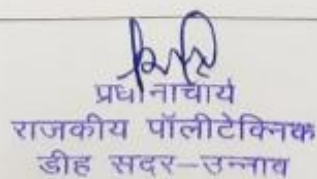 प्रधानाचार्य
राजकीय पॉलीटेक्निक
डीह सदर-उन्नाव